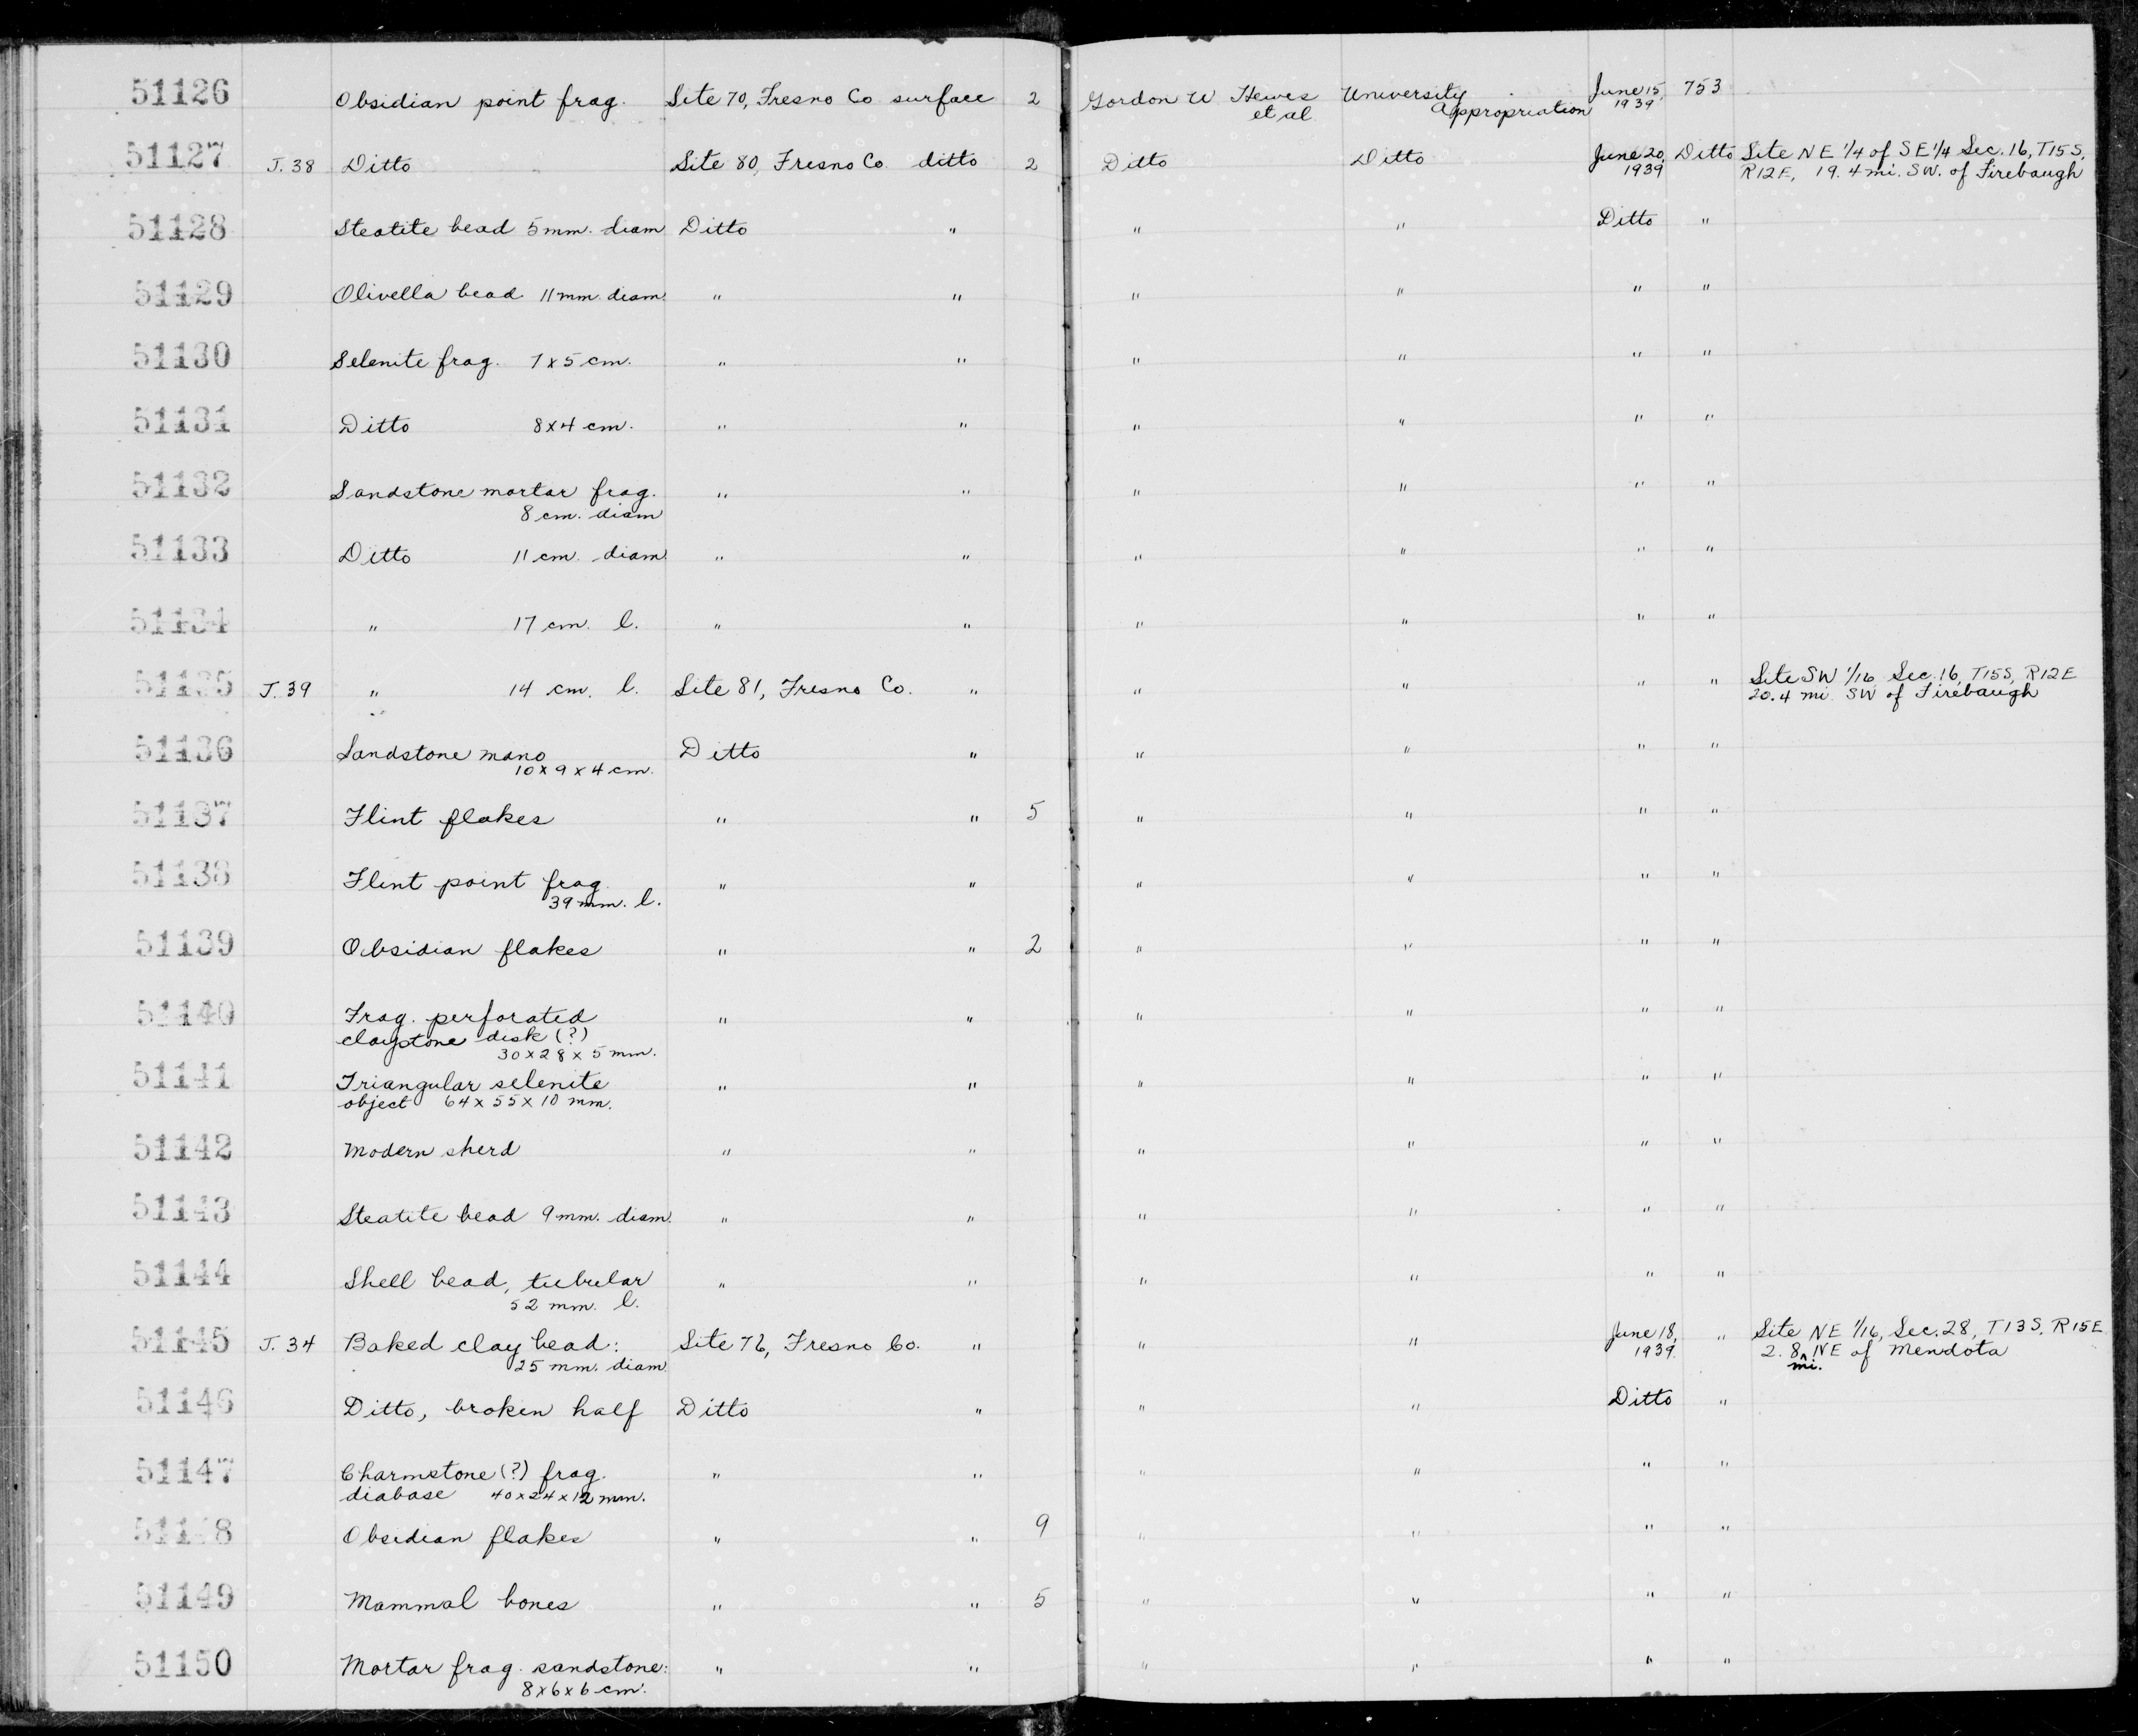 51126 Obsidian point frag. Site 70, Fresno Co surface 2 Gordon W Hewes University June 15, 753
et al Appropriation 1939
51127 J.38 Ditto Site 80, Fresno Co ditto 2 Ditto Ditto June 20, Ditto Site NE 1/4 of SE 1/4 Sec. 16, T15S,
1939 R12E, 19.4 mi. SW. of Firebaugh
51128 Steatite bead 5 mm. diam Ditto " " " Ditto "
51129 Olivella bead 11 mm. diam. " " " " " "
51130 Selenite frag. 7 x 5 cm. " " " " " "
51131 Ditto 8 x 4 cm. " " " " " "
51132 Sandstone mortar frag. " " " " " "
8 cm. diam
51133 Ditto 11 cm. diam. " " " " " "
51134 " 17 cm. l. " " " " " "
51135 J.39 " 14 cm. l. Site 81, Fresno Co. " " " " " Site SW 1/16, Sec. 16, T15S, R12E
20.4 mi SW of Firebaugh
51136 Sandstone mano Ditto " " " " "
10 x 9 x 4 cm.
51137 Flint flakes " " 5 " " " "
51138 Flint point frag. " " " " " "
39 mm. l.
51139 Obsidian flakes " " 2 " " " "
51140 Frag. perforated " " " " " "
claystone disk (?)
30 x 28 x 5 mm.
51141 Triangular selenite " " " " " "
object 64 x 55 x 10 mm.
51142 Modern sherd " " " " " "
51143 Steatite bead 9 mm. diam. " " " " " "
51144 Shell bead, tubular " " " " " "
52 mm. l.
51145 J.34 Baked clay bead: Site 76, Fresno Co. " " " June 18, " Site NE 1/16, Sec. 28, T13S, R15E
25 mm. diam 1939. 2.8 mi. NE of Mendota
51146 Ditto, broken half Ditto " " " Ditto "
51147 Charmstone (?) frag. " " " " " "
diabase 40 x 24 x 12 mm.
51148 Obsidian flakes " " 9 " " " "
51149 Mammal bones " " 5 " " " "
51150 Mortar frag. sandstone: " " " " " "
8 x 6 x 6 cm.